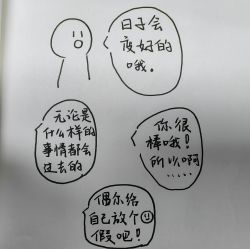 日子会
变好的
哦.
无论是
什么样的
事情都会
过去的
你很
棒哦!
所以啊
.....
偶尔给
自己放个
假吧!